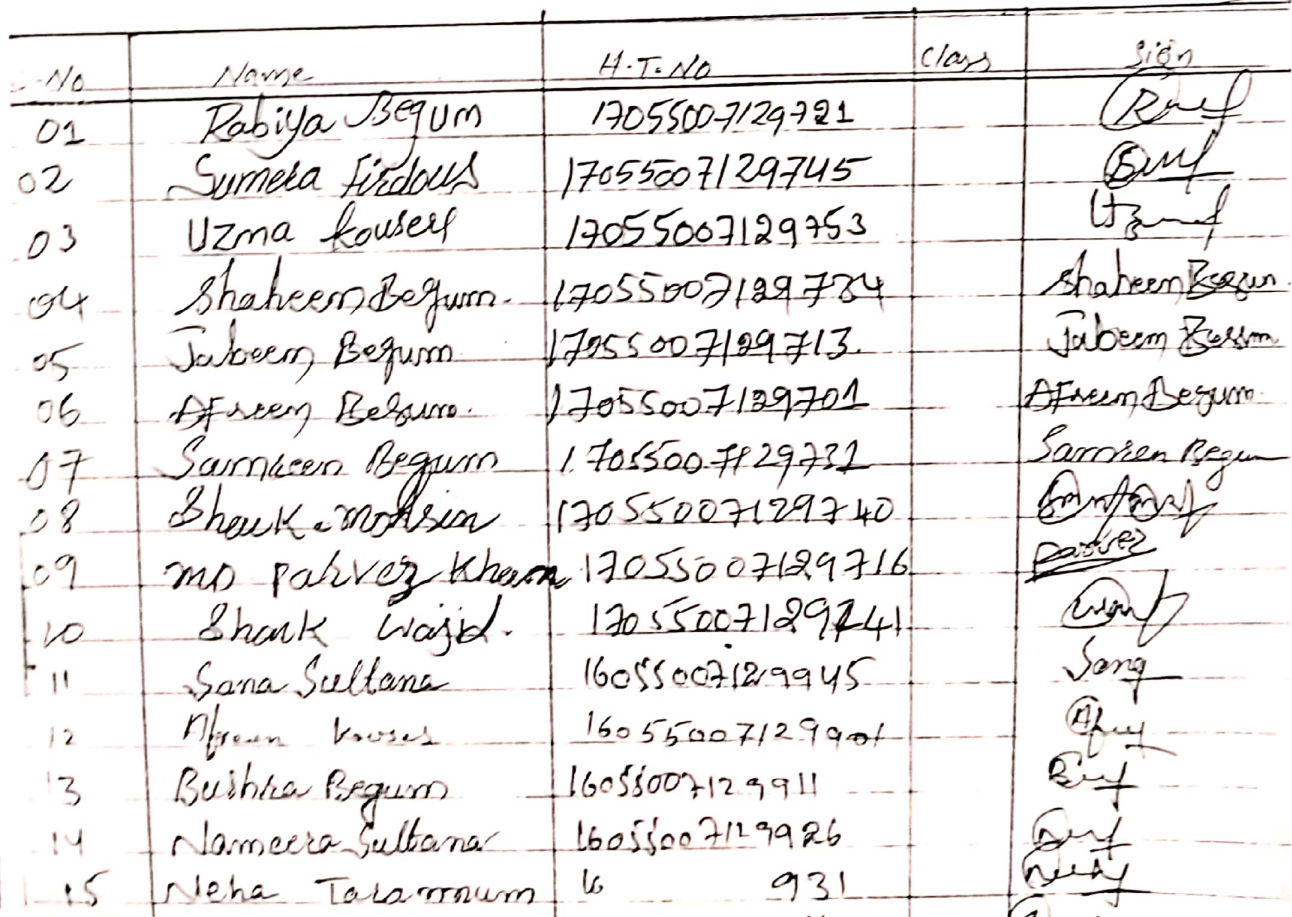 No Name H.T.No Class Sign
01 Rabiya Begum 17055007129721
02 Sumera Firdous 17055007129745
03 Uzma Kouser 17055007129753
04 Shaheen Begum. 17055007129734 Shaheen Begum
05 Jabeen Begum 17055007129713. Jabeen Begum
06 Afreen Begum. 17055007129701 Afreen Begum.
07 Samreen Begum 17055007129732 Samreen Begum
08 Shaik. Mohsin 17055007129740
09 MD Parvez Khan 17055007129716 Parvez
10 Shaik Wajid. 17055007129741
11 Sana Sultana 16055007129945 Sana
12 Afreen Kouser 16055007129901
13 Bushra Begum 16055007129911
14 Nameera Sultana 16055007129926
15 Neha Taramnum 16 931